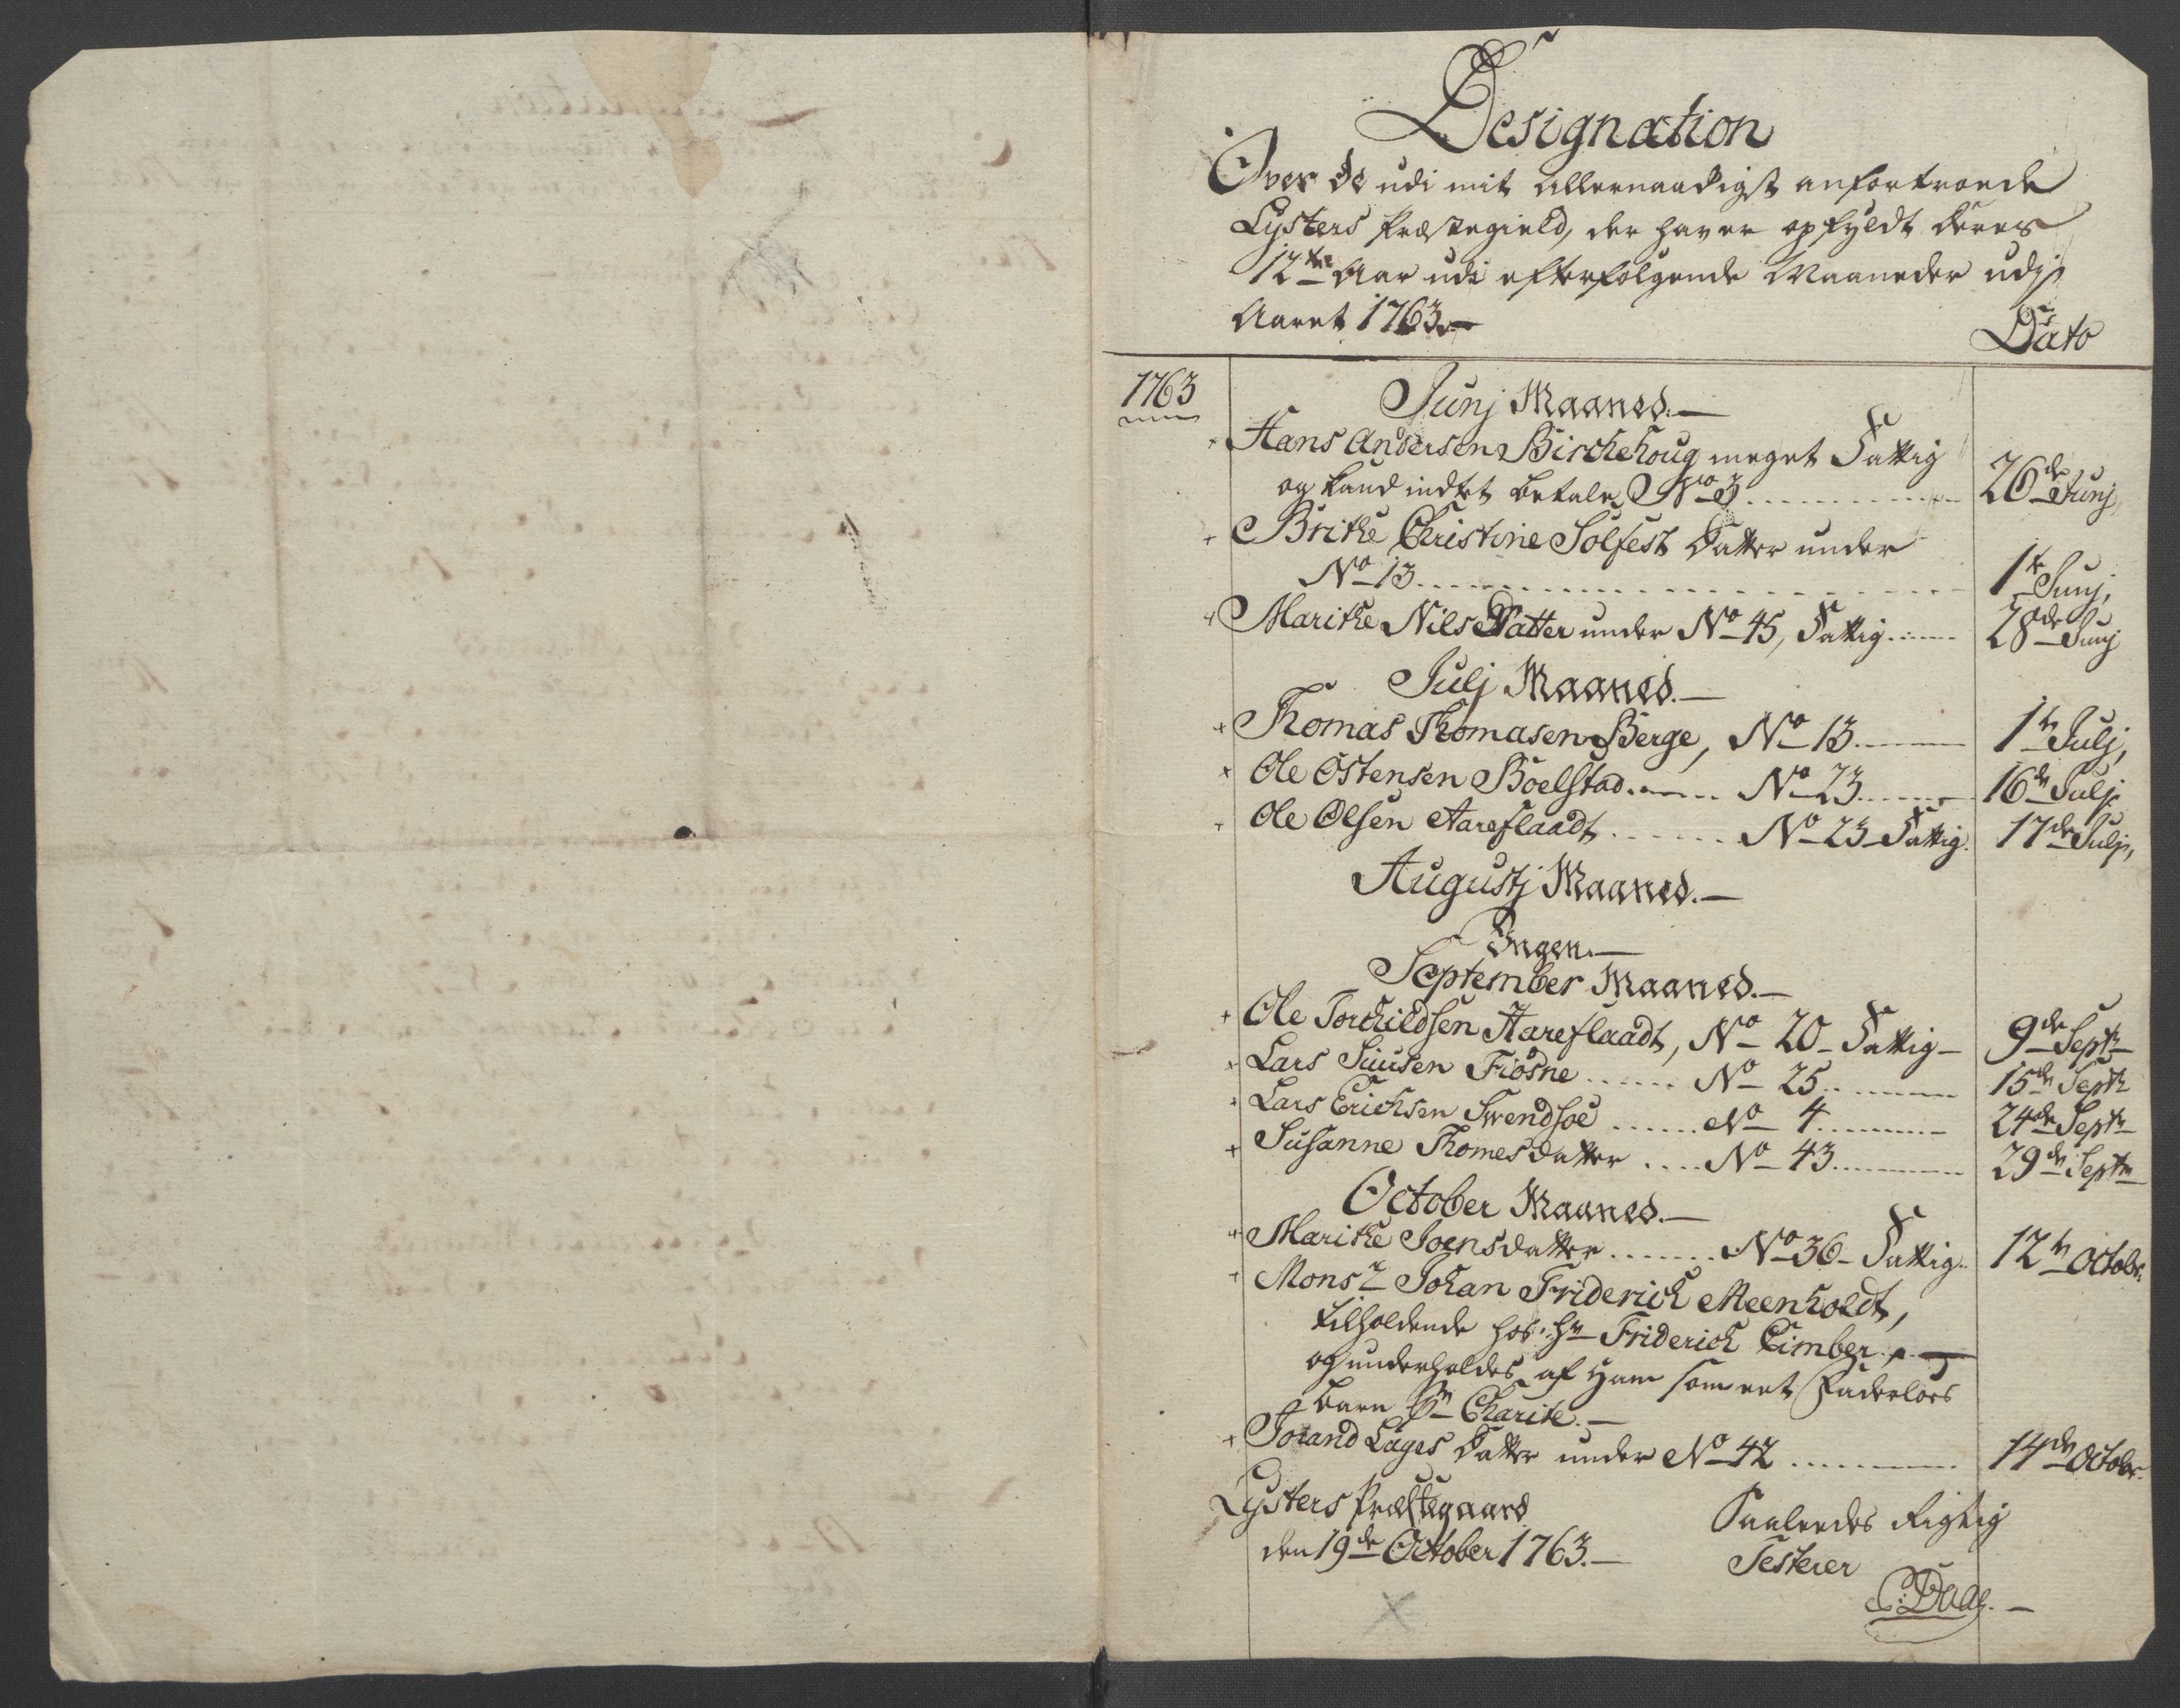 Designation
Over de udi mit allernaadigst anfortroede
Lysters Præstegield, der haver opfyldt deres
12te Aar udi efterfølgende Maaneder udj
Aaret 1763.
Dato
1763
Junj Maaned.
+ Hans Andersen Birchehoug meget Fattig
og kand indtet betale, No 3 26de Junj
+ Brithe Christine Solfest Datter under
No 13 1te Junj,
+ Marithe Nils Datter under No 45, Fattig 28de Junj
Julj Maaned.
+ Thomas Thomasen Berge, No 13 1te Julj,
+ Ole Ostensen Boelstad No 23 16de Julj
+ Ole Olsen Aareflaadt No 23 Fattig. 17de Julj,
Augustj Maaned.
Ingen.
September Maaned.
+ Ole Torchildsen Aareflaadt, No 20 Fattig 9de Septr
+ Lars Siusen Fiøsne No 25 15de Septr
+ Lars Erichsen Svendsøe No 4 24de Septr
+ Susanne Thomesdatter No 43 29de Septr
October Maaned.
+ Marithe Joensdatter No 36 Fattig. 12te Octobr.
+ Monsr Johan Friderich Meenholdt,
tilholdende hos Hr Friderich Cimber,
og underholdes af ham som eet Faderløs
barn pr Charite.
+ Jorand Lages Datter under No 42 14de Octobr.
Lysters Præstegaard
den 19de October 1763.
Saaledes Rigtig
Testerer
C: Dahl.